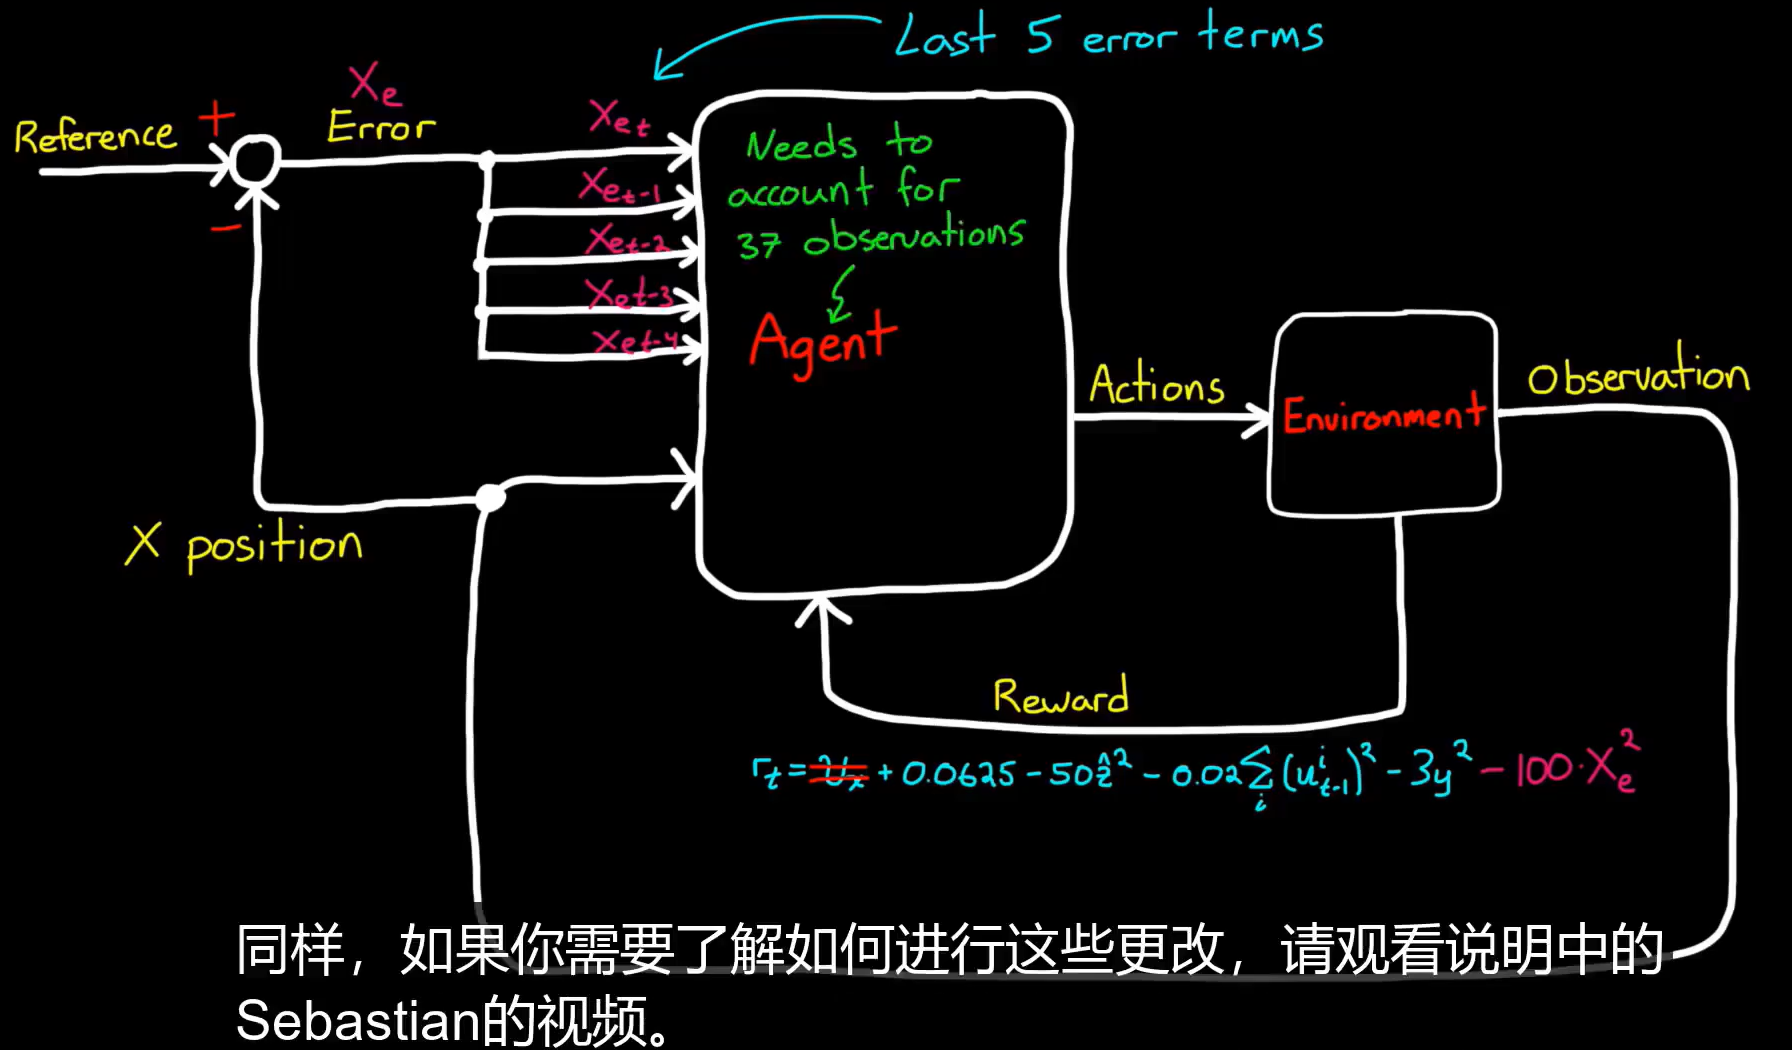 Last 5 error terms
Xe
Reference + Error
-
Xet
Xet-1
Xet-2
Xet-3
Xet-4
Needs to
account for
37 observations
Agent
Actions
Environment
Observation
X position
Reward
rt = vx + 0.0625 - 50ẑ² - 0.02 Σi (u^i_t-1)² - 3y² - 100·Xe²
同样，如果你需要了解如何进行这些更改，请观看说明中的
Sebastian的视频。